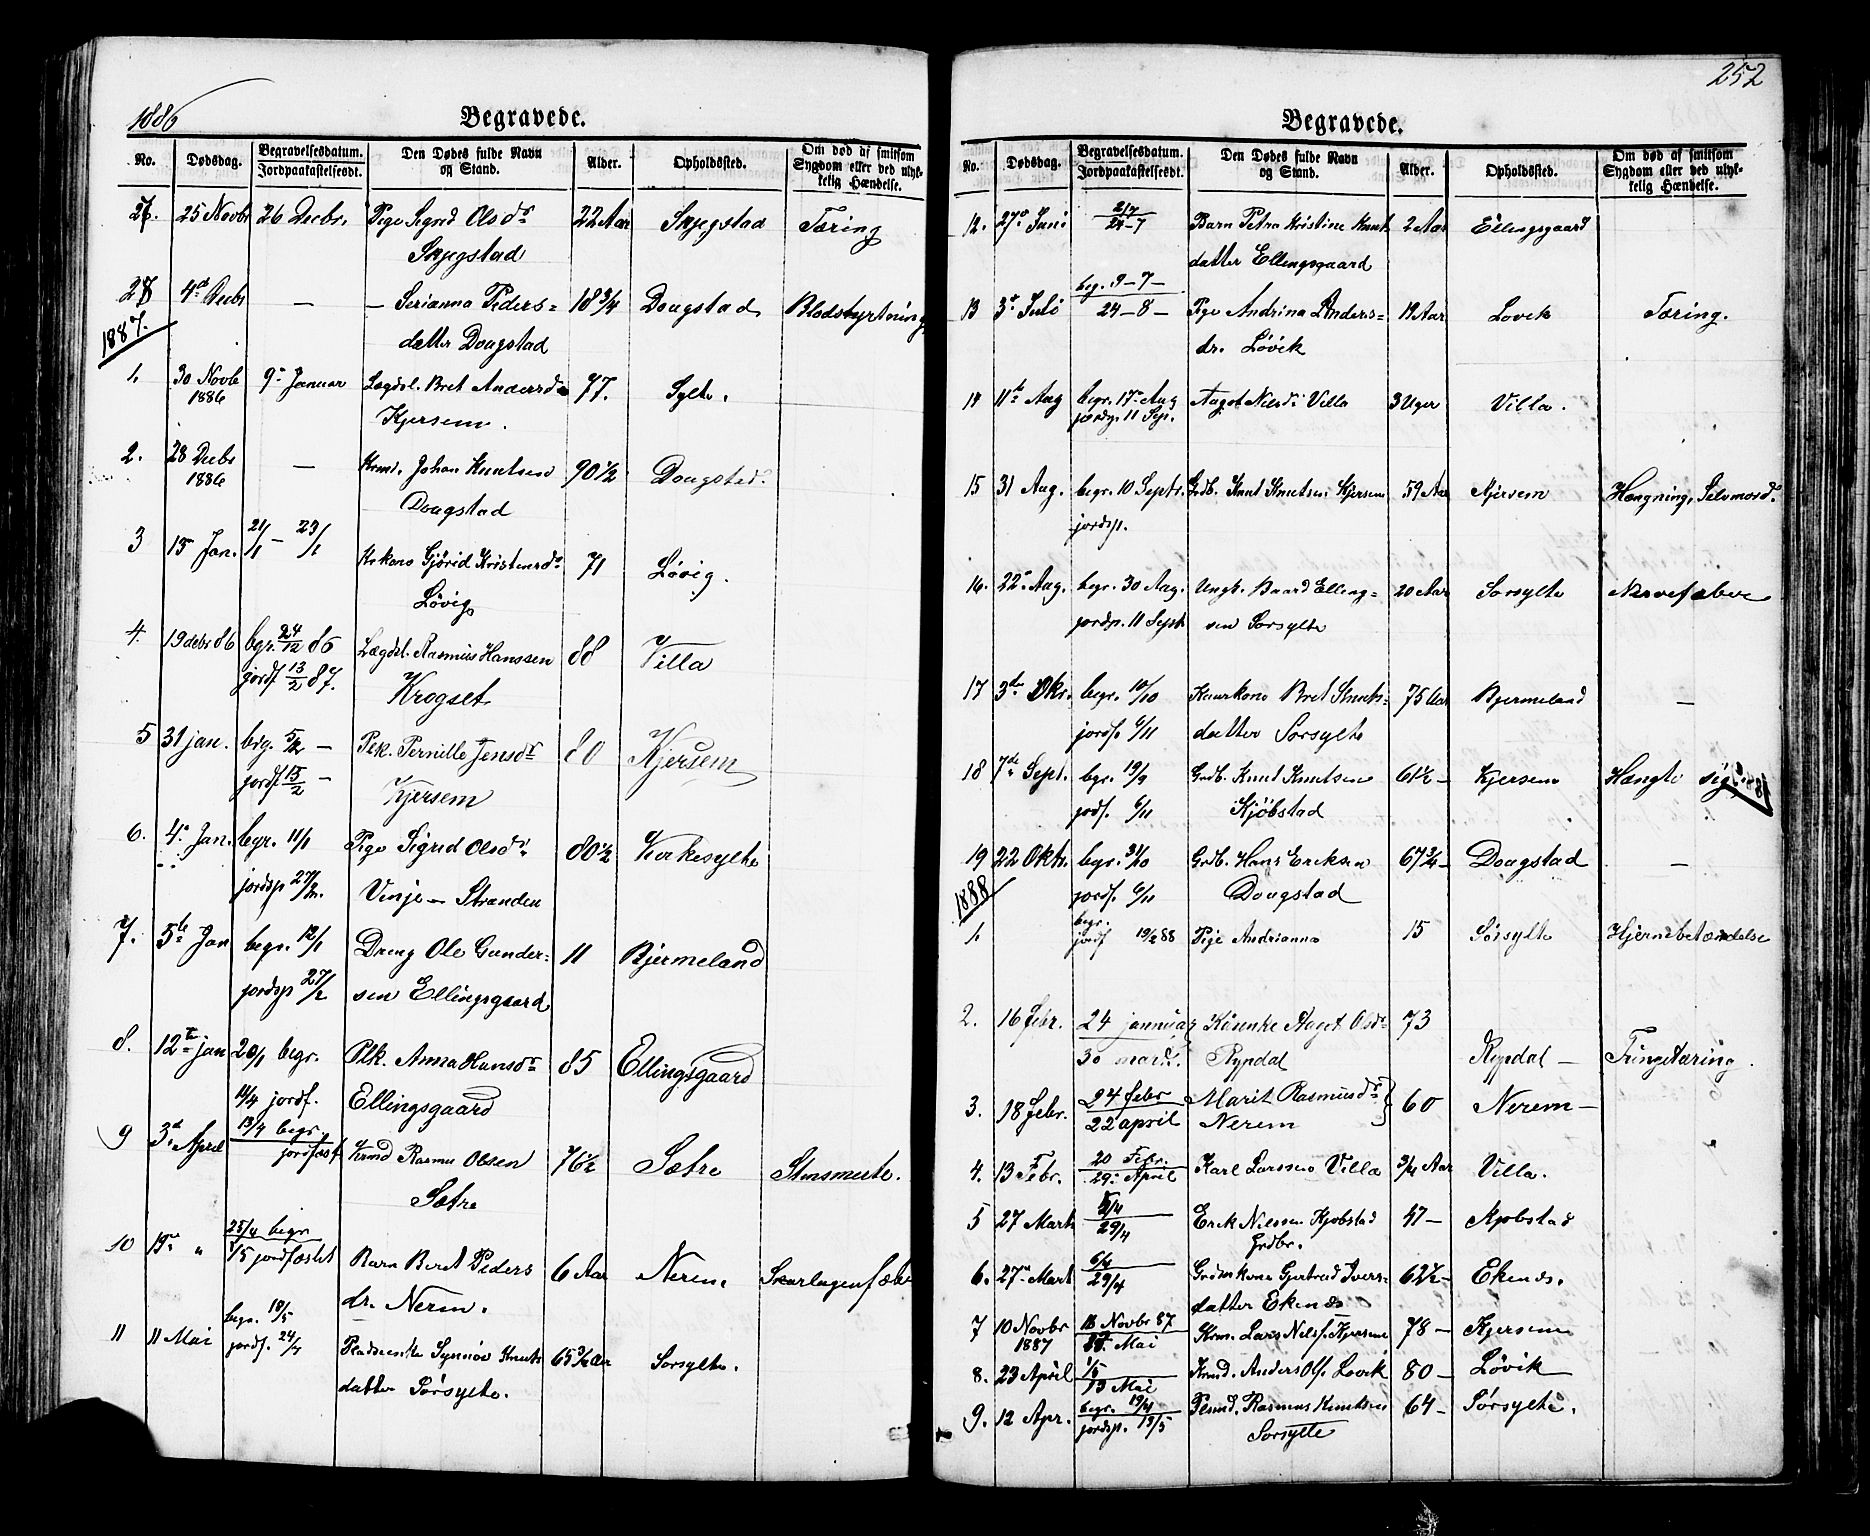 1886
Begravede.
No. Dødsdag. Begravelsesdatum. Jordpaakastelsesdt. Den Dødes fulde Navn og Stand. Alder. Opholdssted. Om død af smitsom Sygdom eller ved ulykkelig Hændelse.
25 Novbr 26 Decbr. Pige Sigrid Olsdr 22 Aar Skjegstad Tæring
Skjegstad
28 4de Decbr — — Serianna Peders= 18 3/4 Dougstad Blodstyrtning
datter Dougstad
1887.
1. 30 Novb 9de Januar Lægdsl. Bret Andersdr 77. Sylte.
1886 Kjersem.
2. 28 Decbr — Kmd. Johan Knutsen 90 1/2 Dougstad.
1886 Dougstad
3 15 Jan. 21/1 — 23/1 Gjørid Kristensdr 71 Løvig.
Løvig
4. 19 debr 86 bgr. 24/12 86 Lægdsl. Rasmus Hanssen 88 Villa
jordf 13/2 87. Krogset
5 31 jan. brg. 5/2 — Plk. Pernille Jensdr 80 Kjersem
jordf 13/2 — Kjersem
6. 4de Jan. begr. 11/1 Pige Sigrid Olsdr 80 1/2 Kirkesylte
jordsp 27/2. Vinje — Stranden
7. 5te Jan begr. 12/1 Dreng Ole Gunder= 11 Bjermeland
jordsp 27/2 sen Ellingsgaard
8. 12te jan 20/1 begr. Plk. Anna Hansdr 85 Ellingsgaard
14/4 jordf. Ellingsgaard
9 3de April 13/4 begr. Kmd Rasmus Olsen 76 1/2 Sætre Stensmerte.
jordfæst Sætre
10 19de " 25/4 begr
1/5 jordfæstet Barn Beret Peders 6 Aar Nerem Skarlagenfæber
dr. Nerem.
begr. 18/5
11 11 Mai jordf. 24/7 Synnøve Knuts 65 3/4 Aar Sorsylte.
datter Sørsylte.
252
Begravede.
No. Dødsdag. Begravelsesdatum. Jordpaakastelsesdt. Den Dødes fulde Navn og Stand. Alder. Opholdssted. Om død af smitsom Sygdom eller ved ulykkelig Hændelse.
12. 27de Juni 2/7 24-7 Barn Petra Kristine Knut 2 Aar Ellingsgaard
datter Ellingsgaard
beg. 9-7-
13 3de Juli 24-8- Pige Andrina Anders= 19 Aar Lovik Tæring.
dr. Løvik
14 11te Aug begr. 17de Aug Aagot Nilsdr Villa 3 Uger Villa.
jordsp. 11 Sep.
15 31 Aug. begr. 10 Septr. Grdb. Knut Knutsen Kjersem 59 Aar Kjersem Hængning, Selvmord.
jordsp.
16. 22de Aug. begr. 30 Aug. Ungk. Baard Elling= 20 Aar Sorsylte Nervefeber
jordsp. 11 Sept sen Sorsylte
17 3die Okr. begr. 10/10 Kaarkone Bret Knuts= 75 Aar Bjermeland —
jordf 6/11 datter Sorsylte
18 7de Sept. begr. 19/9 Grdb. Knut Knutsen 61 1/2 — Kjersem Hængte sig
jodf. 6/11 Kjøbstad
19 22 Oktr. begr. 31/10 Grdb. Hans Eriksen 67 3/4 — Dougstad —
jordf. 6/11 Dougstad
1888
begr.
1. jordf 19/2 88 Pige Andrianna 15 Sørsylte Hjernebetændelse
2. 16 febr. 24 januar Aagot Olsdr 73
30 mars. Rypdal Rypdal — Tæring.
3. 18 febr. 24 febr Marit Rasmusdr 60 Nerem —
22 april Nerem
4. 13 Febr. 20 Febr. Karl Larssen Villa 3/4 Aar Villa.
29. April
5 27 Marts 5/4 Erik Nilssen Kjobstad 47 — Kjobstad
29/4 Grdbr.
6. 27de Mart 6/4 Gjertrud Ivers= 62 1/2 — Ekenæs.
29/4 datter Ekenæs
7 10 Novbr 18 Novbr 87 Krm. Lars Nels. Kjersem 78 — Kjersem
1887 Mai
8. 23 April 1/5 Kmd. Anders Ols. Lovik 80 — Løvik
13 Mai
9. 12 Apr. begr. 19/4 Rasmus Knutsen 64 — Sørsylte.
jordsp. 13/5 Sorsylte